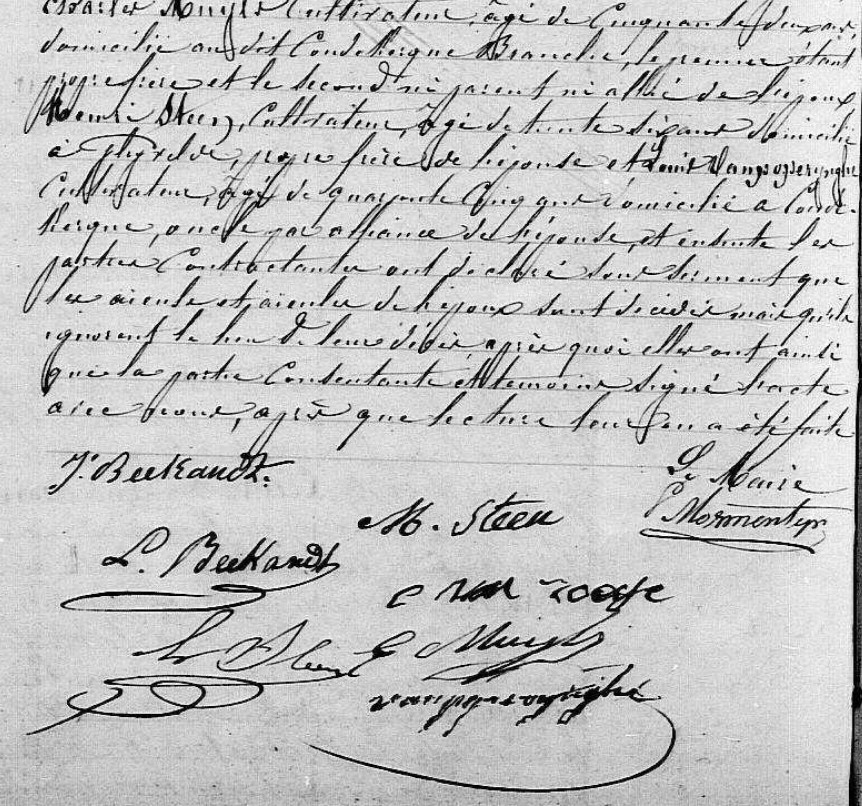 Charles Muyls Cultivateur, âgé de Cinquante deux ans
domicilié au dit Coudekerque Branche, le premier étant
propre frère et le second ni parent ni allié de l'époux
Henri Steen, Cultivateur, âgé de trente six ans domicilié
à propre frère de l'épouse et Louis Vanpopperynghe
Cultivateur, âgé de quarante Cinq ans domicilié à Coude-
kerque, oncle par alliance de l'épouse, et ensuite les
parties Contractantes ont déclaré sous serment que
les aieuls et aieules de l'époux sont décédés mais qu'ils
ignorent le lieu de leur décès, après quoi elles ont ainsi
que la partie Consentante et témoins signé l'acte
avec nous, après que lecture leur en a été faite
J. Beekandt.
Le Maire
M. Steen
L. Beekandt
H Steen
C Muyls
vanpopperynghe